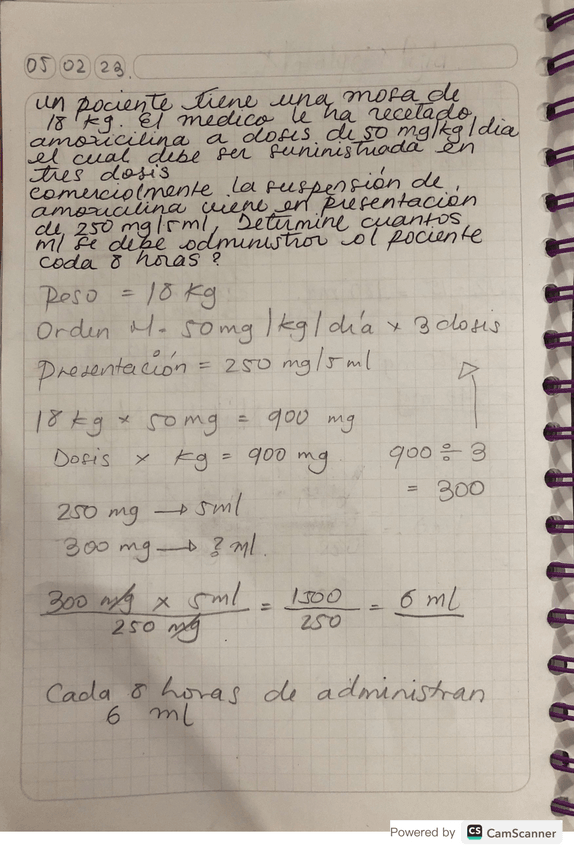 05 02 23.
un paciente tiene una masa de
18 kg. El medico le ha recetado
amoxicilina a dosis de 50 mg/kg/dia
el cual debe ser suministrada en
tres dosis
comercialmente la suspensión de
amoxicilina viene en presentación
de 250 mg/5ml, Determine cuantos
ml se debe administrar al paciente
cada 8 horas?
Peso = 18 kg
Orden M. 50mg/kg/día x 3 dosis
Presentación = 250 mg/5ml
18 kg x 50 mg = 900 mg
Dosis x kg = 900 mg
900 ÷ 3
= 300
250 mg → 5ml
300 mg → ? ml.
300 mg x 5 ml = 1500 = 6 ml
250 mg 250
Cada 8 horas de administran
6 ml
Powered by CS CamScanner